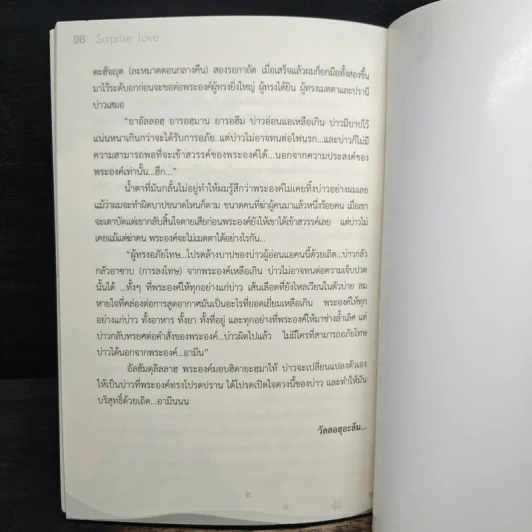 96 Surprise Love
ตะฮัจญุด (ละหมาดตอนกลางคืน) สองรอกาอัต เมื่อเสร็จแล้วผมก็ยกมือทั้งสองขึ้น
มาไว้ระดับอกก่อนจะขอต่อพระองค์ผู้ทรงยิ่งใหญ่ ผู้ทรงได้ยิน ผู้ทรงเมตตาและปรานี
บ่าวเสมอ
"ยาอัลลอฮุ ยารอฮมาน ยารอฮีม บ่าวอ่อนแอเหลือเกิน บ่าวมีบาปไว้
แน่นหนาเกินกว่าจะได้รับการอภัย...แต่บ่าวไม่อาจทนต่อไฟนรก...และบ่าวก็ไม่มี
ความสามารถพอที่จะเข้าสวรรค์ของพระองค์ได้...นอกจากความประสงค์ของ
พระองค์เท่านั้น...ฮึก..."
น้ำตาที่มันกลั้นไม่อยู่ทำให้ผมรู้สึกว่าพระองค์ไม่เคยทิ้งบ่าวอย่างผมเลย
แม้ว่าผมจะทำผิดบาปขนาดไหนก็ตาม ขนาดคนที่ฆ่าผู้คนมาแล้วหนึ่งร้อยคน เมื่อเขา
จะเตาบัตแต่เขากลับสิ้นใจตายเสียก่อนพระองค์ยังให้เขาได้เข้าสวรรค์เลย แต่บ่าวไม่
เคยแม้แต่ฆ่าคน พระองค์จะไม่เมตตาได้อย่างไรกัน...
"ผู้ทรงอภัยโทษ...โปรดล้างบาปของบ่าวผู้อ่อนแอคนนี้ด้วยเถิด...บ่าวกลัว
กลัวอาซาบ (การลงโทษ) จากพระองค์เหลือเกิน บ่าวไม่อาจทนต่อความเจ็บปวด
นั้นได้ ...ทั้งๆ ที่พระองค์ให้ทุกอย่างแก่บ่าว เส้นเลือดที่ยังไหลเวียนในตัวบ่าย ลม
หายใจที่คล่องต่อการสูดอากาศมันเป็นอะไรที่ยอดเยี่ยมเหลือเกิน พระองค์ให้ทุก
อย่างแก่บ่าว ทั้งอาหาร ทั้งยา ทั้งที่อยู่ และทุกอย่างที่พระองค์ให้มาช่างล้ำเลิศ แต่
บ่าวกลับทรยศต่อคำสั่งของพระองค์...บ่าวผิดไปแล้ว ไม่มีใครที่สามารถอภัยโทษ
บ่าวได้นอกจากพระองค์...อามีน"
อัลฮัมดุลิลลาฮ พระองค์มอบฮิดายะฮมาให้ บ่าวจะเปลี่ยนแปลงตัวเอง
ให้เป็นบ่าวที่พระองค์ทรงโปรดปราน ได้โปรดเปิดใจดวงนี้ของบ่าว และทำให้มัน
บริสุทธิ์ด้วยเถิด...อามีนนน
วัลลอฮุอะลัม...